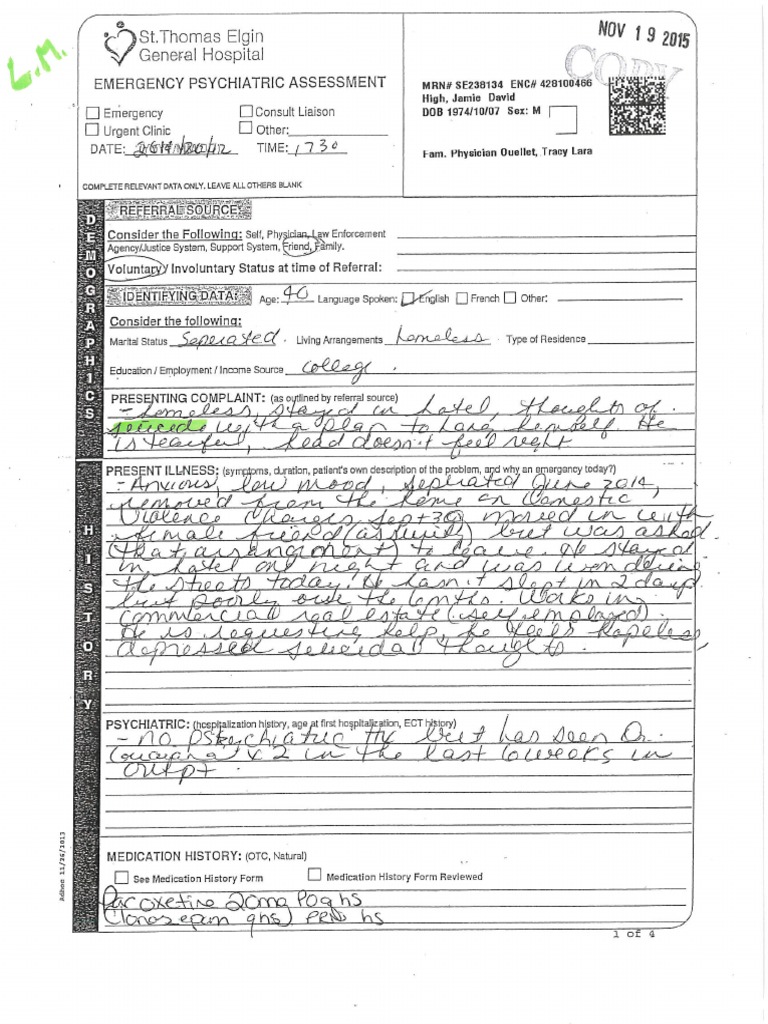 L.M.
St.Thomas Elgin
General Hospital
NOV 19 2015
COPY
EMERGENCY PSYCHIATRIC ASSESSMENT
MRN# SE238134 ENC# 428100466
High, Jamie David
DOB 1974/10/07 Sex: M
Emergency
Consult Liaison
Urgent Clinic
Other:
DATE: TIME: 1730
Fam. Physician Ouellet, Tracy Lara
COMPLETE RELEVANT DATA ONLY. LEAVE ALL OTHERS BLANK
DEMOGRAPHICS
REFERRAL SOURCE:
Consider the Following: Self, Physician, Law Enforcement
Agency/Justice System, Support System, Friend, Family.
Voluntary / Involuntary Status at time of Referral:
IDENTIFYING DATA: Age: 40 Language Spoken: English French Other:
Consider the following:
Marital Status Seperated. Living Arrangements homeless. Type of Residence
Education / Employment / Income Source college.
PRESENTING COMPLAINT: (as outlined by referral source)
- homeless, stayed in hotel, thoughts of
suicide with a plan to hang himself. He
is tearful, head doesn't feel right
HISTORY
PRESENT ILLNESS: (symptoms, duration, patient's own description of the problem, and why an emergency today?)
- Anxious, low mood, seperated June 2014,
removed from the home on Domestic
Violence charges Sept 30, moved in with
female friend but was asked
(that arrangement) to leave. He stayed
in hotel one night and was wondering
the streets today. He hasn't slept in 2 days
but poorly over the 6mths. Works in
commercial real estate (self employed).
He is requesting help, he feels hopeless,
depressed suicidal thoughts.
PSYCHIATRIC: (hospitalization history, age at first hospitalization, ECT history)
- no Psychiatric Hx but has seen Dr.
x 2 in the last 6 weeks in
outpt.
MEDICATION HISTORY: (OTC, Natural)
See Medication History Form
Medication History Form Reviewed
Paroxetine 20mg PO qhs
Clonazepam qhs PRN hs
Adhoc 11/26/2013
1 of 4